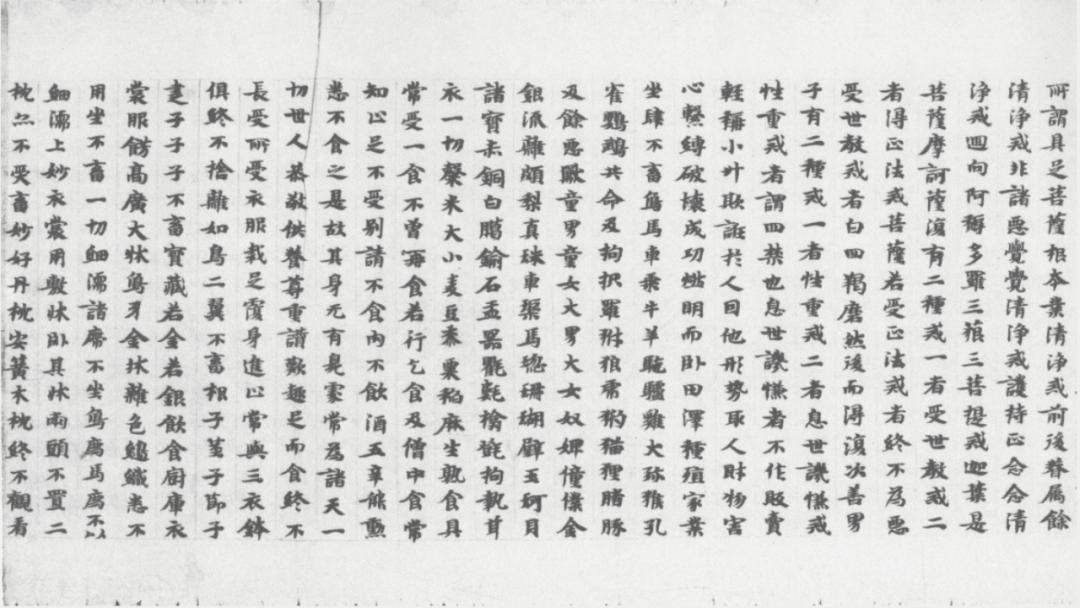 所謂具足菩薩根本業清淨戒前後眷屬餘
清淨戒非諸惡覺覺清淨戒護持正念念清
淨戒迴向阿耨多羅三藐三菩提戒迦葉是
菩薩摩訶薩復有二種戒一者受世教戒二
者得正法戒菩薩若受正法戒者終不為惡
受世教戒者白四羯磨然後而得復次善男
子有二種戒一者性重戒二者息世譏慊戒
性重戒者謂四禁也息世譏慊者不作販賣
輕稱小升欺誑於人因他形勢取人財物害
心繫縛破壞成功燃明而卧田澤種殖家業
坐肆不畜象馬車乘牛羊駞驢雞犬猕猴孔
雀鸚鵡共命及拘抧羅豺狼虎豹猫狸猪豚
及餘惡獸童男童女大男大女奴婢僮僕金
銀流離頗梨真珠車璖馬瑙珊瑚璧玉珂貝
諸寶赤銅白鑞鍮石盂器氍毹拘執毦
衣一切穀米大小麦豆黍粟稻麻生熟食具
常受一食不曾再食若行乞食及僧中食常
知止足不受別請不食肉不飲酒五辛能熏
悉不食之是故其身无有臭穢常為諸天一
切世人恭敬供養尊重讚歎趣足而食終不
長受所受衣服裁足覆身進止常與三衣鉢
俱終不捨離如鳥二翼不畜根子莖子節子
子子子不畜寶藏若金若銀飲食廚庫衣
裳服餝高廣大牀象牙金牀雜色編織悉不
用坐不畜一切細濡諸席不坐象薦馬薦不以
細濡上妙衣裳用敷牀卧具牀兩頭不置二
枕亦不受畜妙好丹枕安簧木枕終不觀看